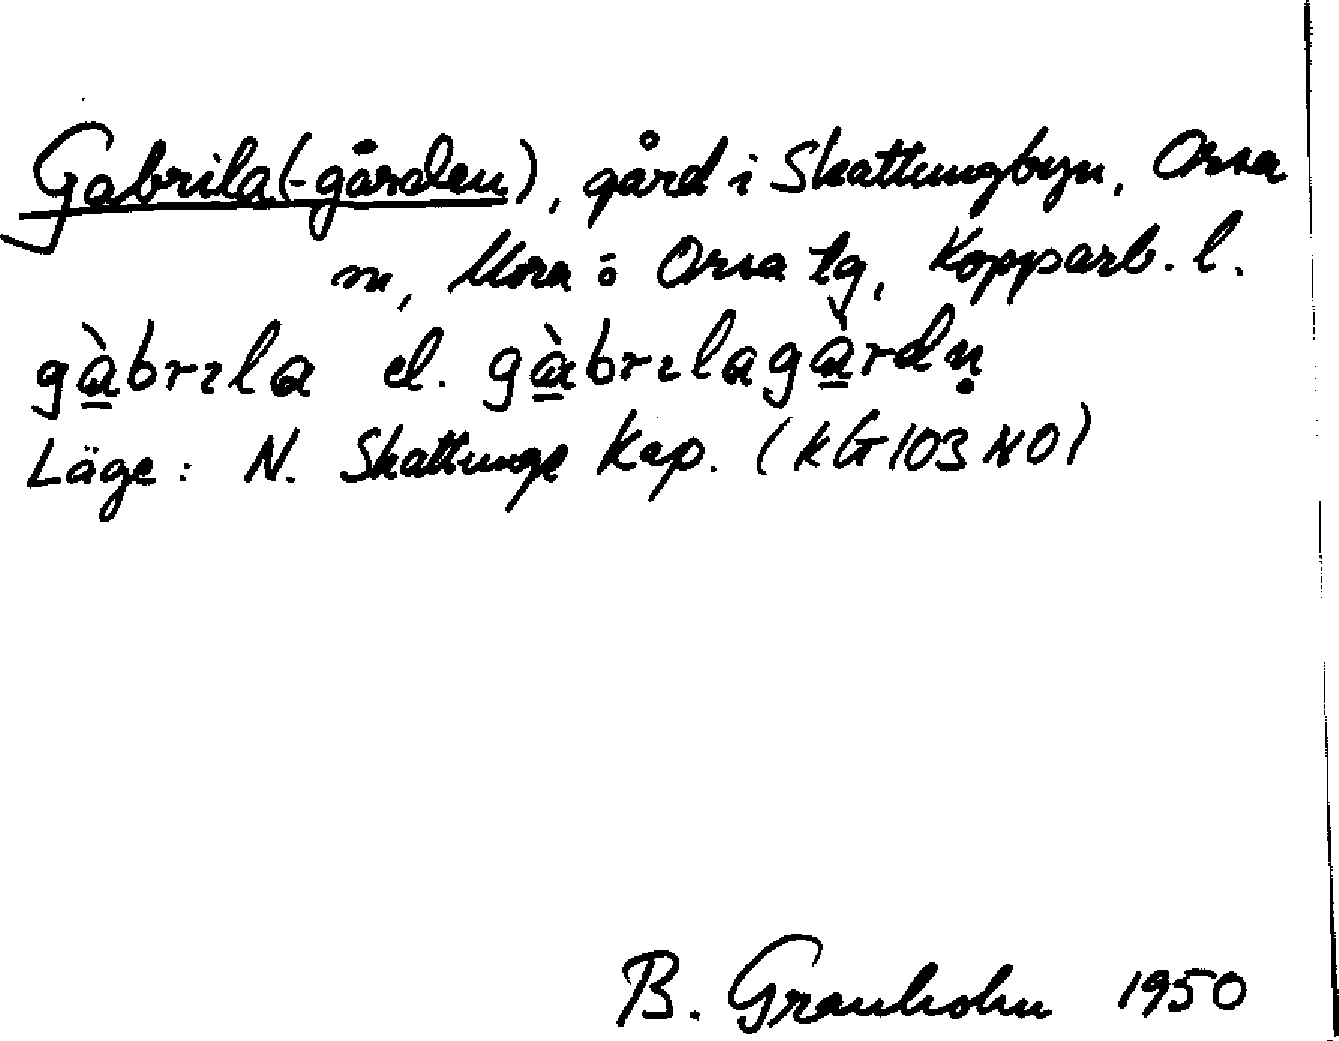 Gabrila(-gården), gård i Skattungbyn, Orsa
sn, Mora o Orsa tg, Kopparb. l.
gà̲brıla el. gà̲brılagà̲rdṇ
Läge: N. Skattunge Kap. (KG 103 NO)
B. Granholm 1950